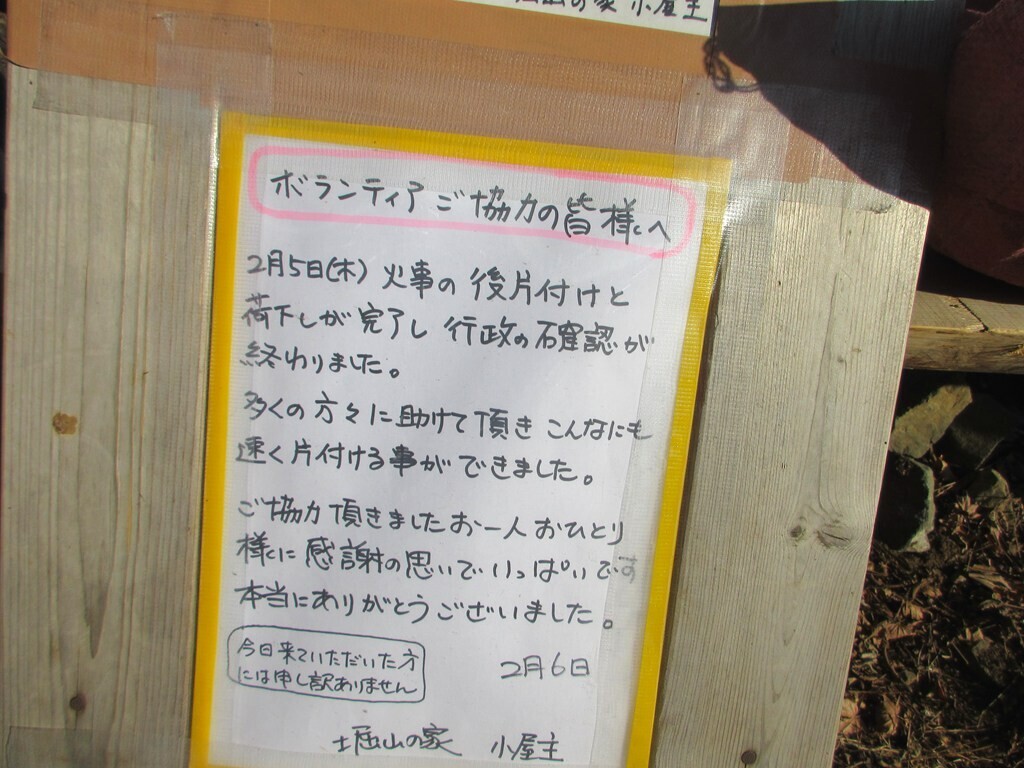 堀山の家 小屋主
ボランティアご協力の皆様へ
2月5日(木) 火事の後片付けと
荷下しが完了し 行政の確認が
終わりました。
多くの方々に助けて頂き こんなにも
速く片付ける事ができました。
ご協力頂きましたお一人おひとり
様に感謝の思いでいっぱいです
本当にありがとうございました。
今日来ていただいた方
には申し訳ありません
2月6日
堀山の家 小屋主